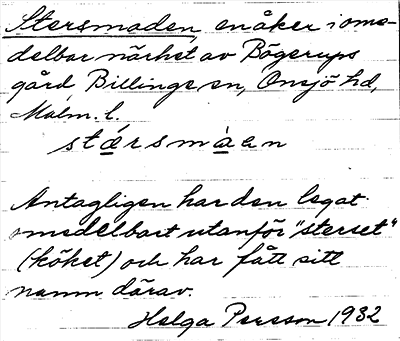 Stersmaden, en åker i ome-
delbar närhet av Bögerups
gård Billinge sn, Onsjö hd,
Malm. l.
stæ̀rsmàen
Antagligen har den legat
omedelbart utanför "sterset"
(köket) och har fått sitt
namn därav.
Helga Persson 1932